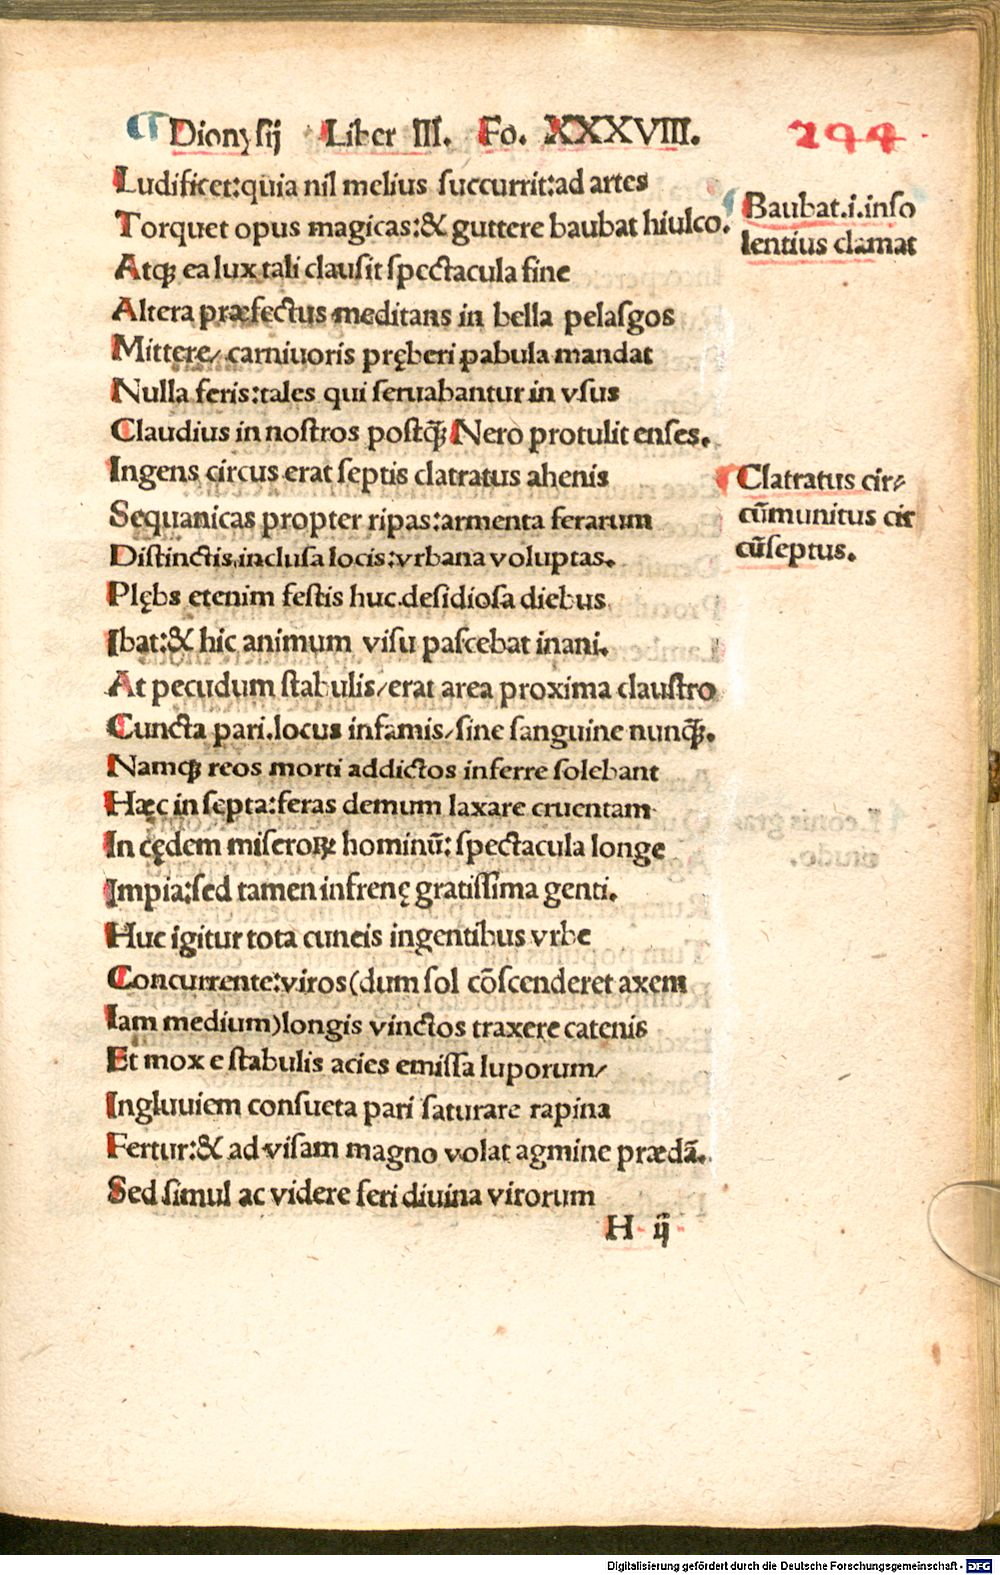 Dionysij Liber III. Fo. XXXVIII. 294
Ludificet:quia nil melius succurrit:ad artes
Torquet opus magicas:& guttere baubat hiulco.
Atqꝫ ea lux tali clausit spectacula fine
Altera præfectus meditans in bella pelasgos
Mittere/ carniuoris pręberi pabula mandat
Nulla feris:tales qui seruabantur in vsus
Claudius in nostros postq̃ꝫ Nero protulit enses.
Ingens circus erat septis clatratus ahenis
Sequanicas propter ripas:armenta ferarum
Distinctis,inclusa locis:vrbana voluptas.
Plębs etenim festis huc.desidiosa diebus
Ibat:& hic animum visu pascebat inani.
At pecudum stabulis/erat area proxima claustro
Cuncta pari.locus infamis/sine sanguine nunq̃ꝫ.
Namqꝫ reos morti addictos inferre solebant
Hæc in septa:feras demum laxare cruentam
In cędem miseroꝝ hominũ: spectacula longe
Impia:sed tamen infrenę gratissima genti.
Huc igitur tota cuneis ingentibus vrbe
Concurrente:viros(dum sol cõscenderet axem
Iam medium)longis vinctos traxere catenis
Et mox e stabulis acies emissa luporum/
Ingluuiem consueta pari saturare rapina
Fertur:& ad visam magno volat agmine prædã.
Sed simul ac videre feri diuina virorum
H ij
Baubat.i.inso
lentius clamat
Clatratus cir⸗
cũmunitus cir
cũseptus.
Digitalisierung gefördert durch die Deutsche Forschungsgemeinschaft - DFG